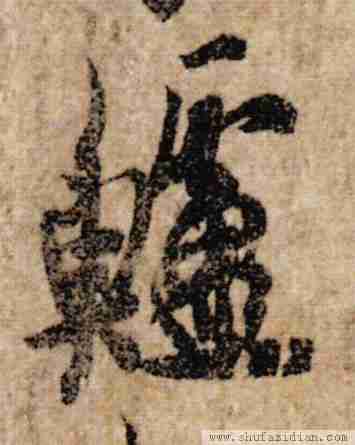 轤
www.shufazidian.com